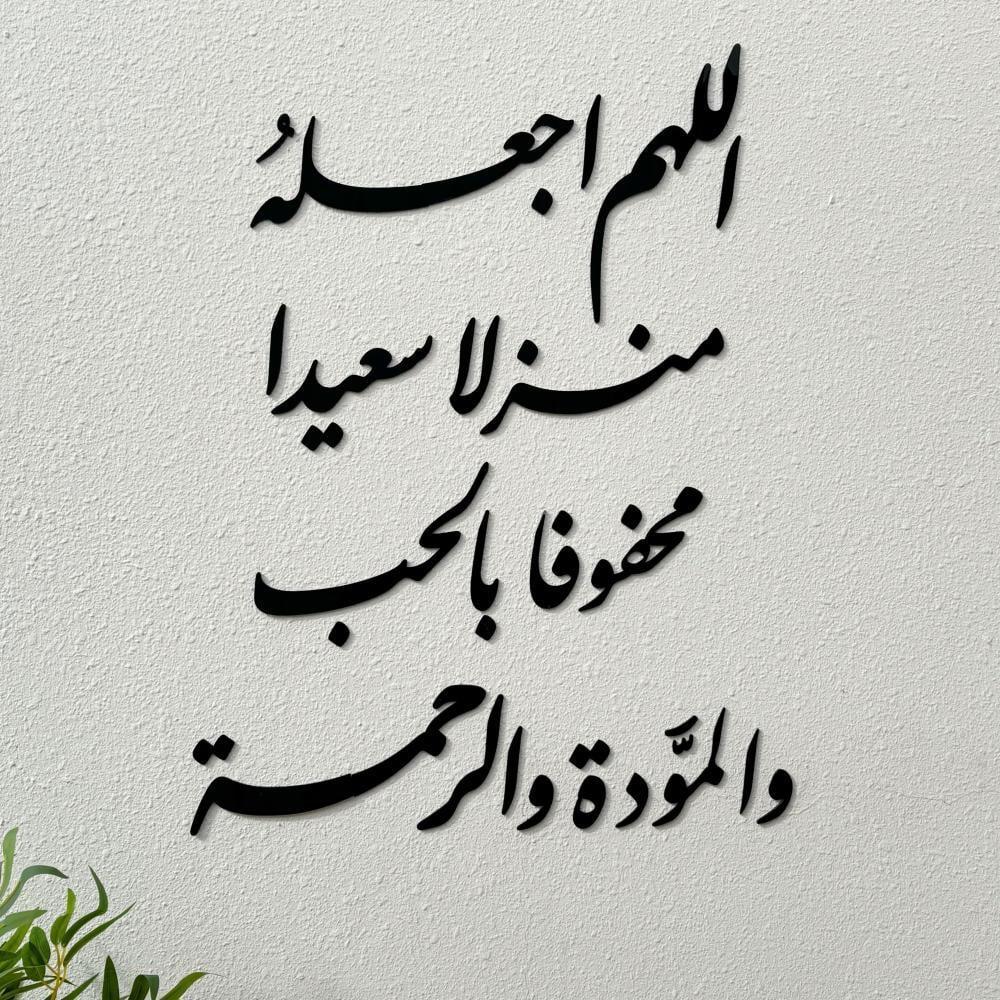 اللهم اجعلهُ
منزلا سعيدا
محفوفا بالحب
والموَّدة والرحمة